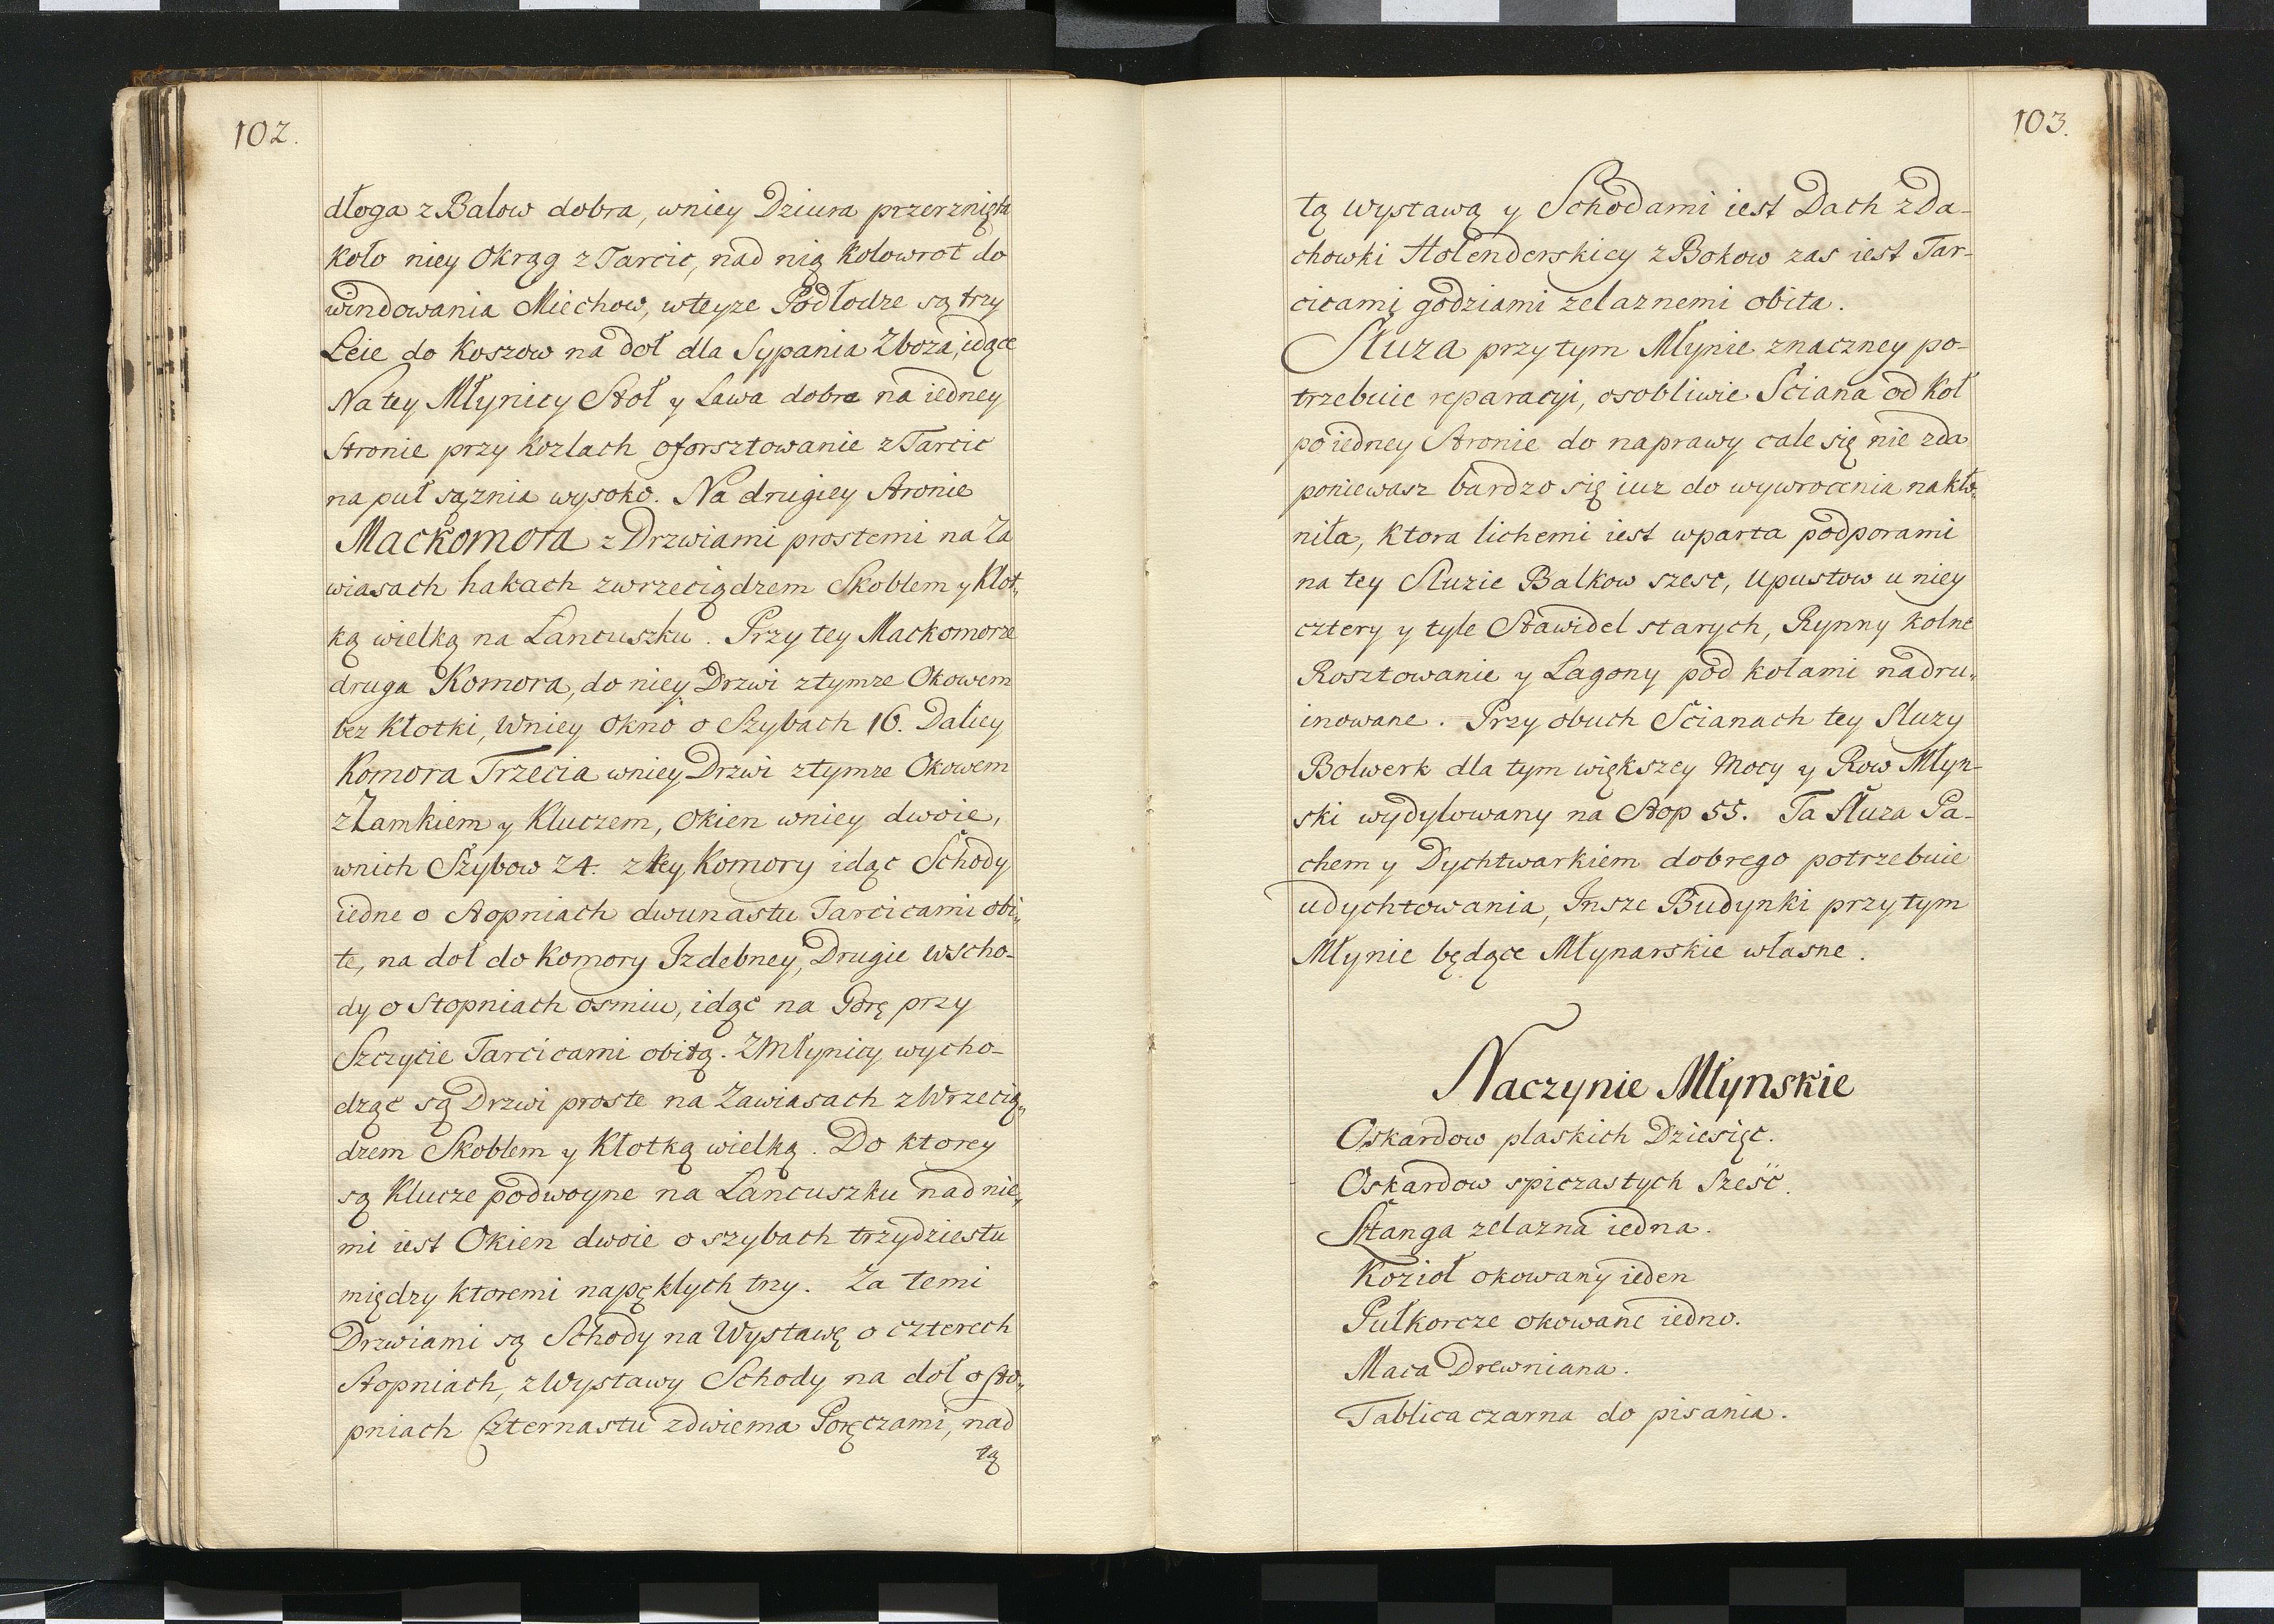 102.
dłoga z Balow dobra, wniey Dziura przerznięta
koło niey Okrąg z Tarcic, nad nią Kołowrot do
windowania Miechow, wteyze Podłodze są trzy
Leie do Koszow na doł dla Sypania Zboza, idące
Na tey Młynicy Stoł y Lawa dobra na iedney
Stronie przy Kozlach oforsztowanie z Tarcic
na puł sąznia wysoko. Na drugiey Stronie
Mackomora z Drzwiami prostemi na Za
wiasach hakach zwrzeciądzem Skoblem y Klot,,
ką wielką na Lancuszku. Przy tey Mackomorze
druga Komora, do niey Drzwi ztymze Okowem
bez Kłotki, Wniey Okno o Szybach 16. Daliey
Komora Trzecia wniey Drzwi ztymze Okowem
z Zamkiem y Kluczem, Okien wniey dwoie,
wnich Szybow 24. z tey Komory idąc Schody
iedne o Stopniach dwunastu Tarcicami obi,,
te, na doł do Komory Izdebney, Drugie Wscho-
dy o Stopniach osmiu, idąc na Gorę przy
Szczycie Tarcicami obitą. Z Młynicy wycho-
dząc są Drzwi proste na Zawiasach z Wrzecią,,
dzem Skoblem y Kłotką wielką. Do ktorey
są Klucze podwoyne na Lancuszku nad nie,,
mi iest Okien dwoie o szybach trzydziestu
między ktoremi napękłych trzy. Za temi
Drzwiami są Schody na Wystawę o czterech
Stopniach, z Wystawy Schody na doł o Sto,,
pniach Czternastu zdwiema Poręczami, nad
tą
103.
tą wystawą y Schodami iest Dach z Da-
chowki Holenderskiey z Bokow zas iest Tar-
cicami godziami zelaznemi obita.
Sluza przy tym Młynie znaczney po-
trzebuie reparacyi, osobliwie Sciana od Koł
po iedney Stronie do naprawy cale się nie zda
poniewasz bardzo się iuz do wywrocenia nakło,,
niła, ktora lichemi iest wparta podporami
na tey Sluzie Balkow szesc, Upustow u niey
cztery y tyle Stawidel starych, Rynny kolne
Rosztowanie y Lagony pod kołami nadru,,
inowane. Przy obuch Scianach tey Sluzy
Bolwerk dla tym większey Mocy y Row Młyn-
ski wydylowany na Stop 55. Ta Sluza Pa-
chem y Dychtwarkiem dobrego potrzebuie
udychtowania, Insze Budynki przy tym
Młynie będące Młynarskie własne.
Naczynie Młynskie
Oskardow plaskich Dziesięc.
Oskardow spiczastych Szesć.
Sztanga zelazna iedna.
Kozioł okowany ieden
Pułkorcze okowane iedno.
Maca Drewniana.
Tablica czarna do pisania.